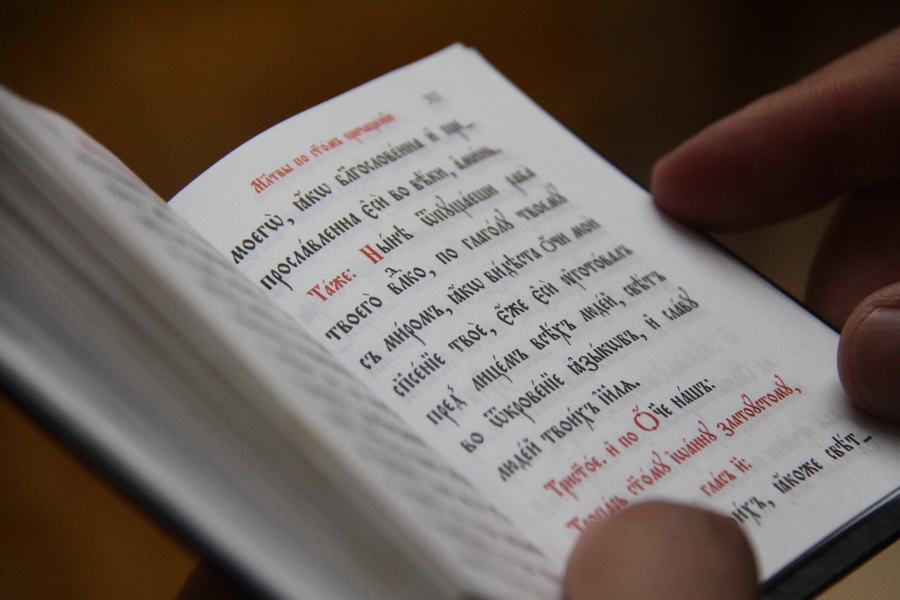 Мл҃твы по ст҃о́мъ причаще́нїи
моегѡ̀, ꙗ҆́кѡ бл҃гослове́нна и҆ пре_
просла́вленна є҆сѝ во вѣ́ки, а҆ми́нь.
Та́же: Ны́нѣ ѿпꙋща́еши раба̀
твоего̀ влⷣко, по глаго́лꙋ твоемꙋ̀
съ ми́ромъ, ꙗ҆́кѡ ви́дѣста ѻ҆́чи моѝ
сп҃се́нїе твоѐ, є҆́же є҆сѝ ᲂу҆гото́валъ
пред̾ лице́мъ всѣ́хъ люде́й, свѣ́тъ
во ѿкрове́нїе ꙗ҆зы́кѡвъ, и҆ сла́вꙋ
люде́й твои́хъ і҆и҃лѧ.
Трист҃о́е. и҆ по Ѻ҆́ч҃е на́шъ:
Тропа́рь ст҃о́мꙋ і҆ѡа́ннꙋ златоꙋ́стомꙋ,
гла́съ и҃:
ꙗ҆́коже свѣ́т_